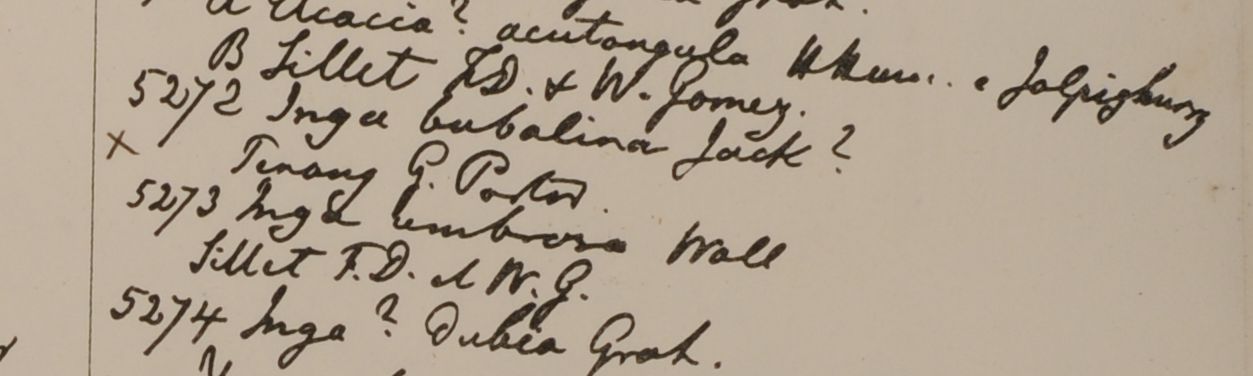 Acacia? acutangula Hham. e Jolpighury
B Sillet F.D. & W. Gomez.
5272 Inga bubalina Jack?
x Penang G. Porter
5273 Inga umbrosa Wall
Sillet F.D. et W. G.
5274 Inga? dubia Grah.